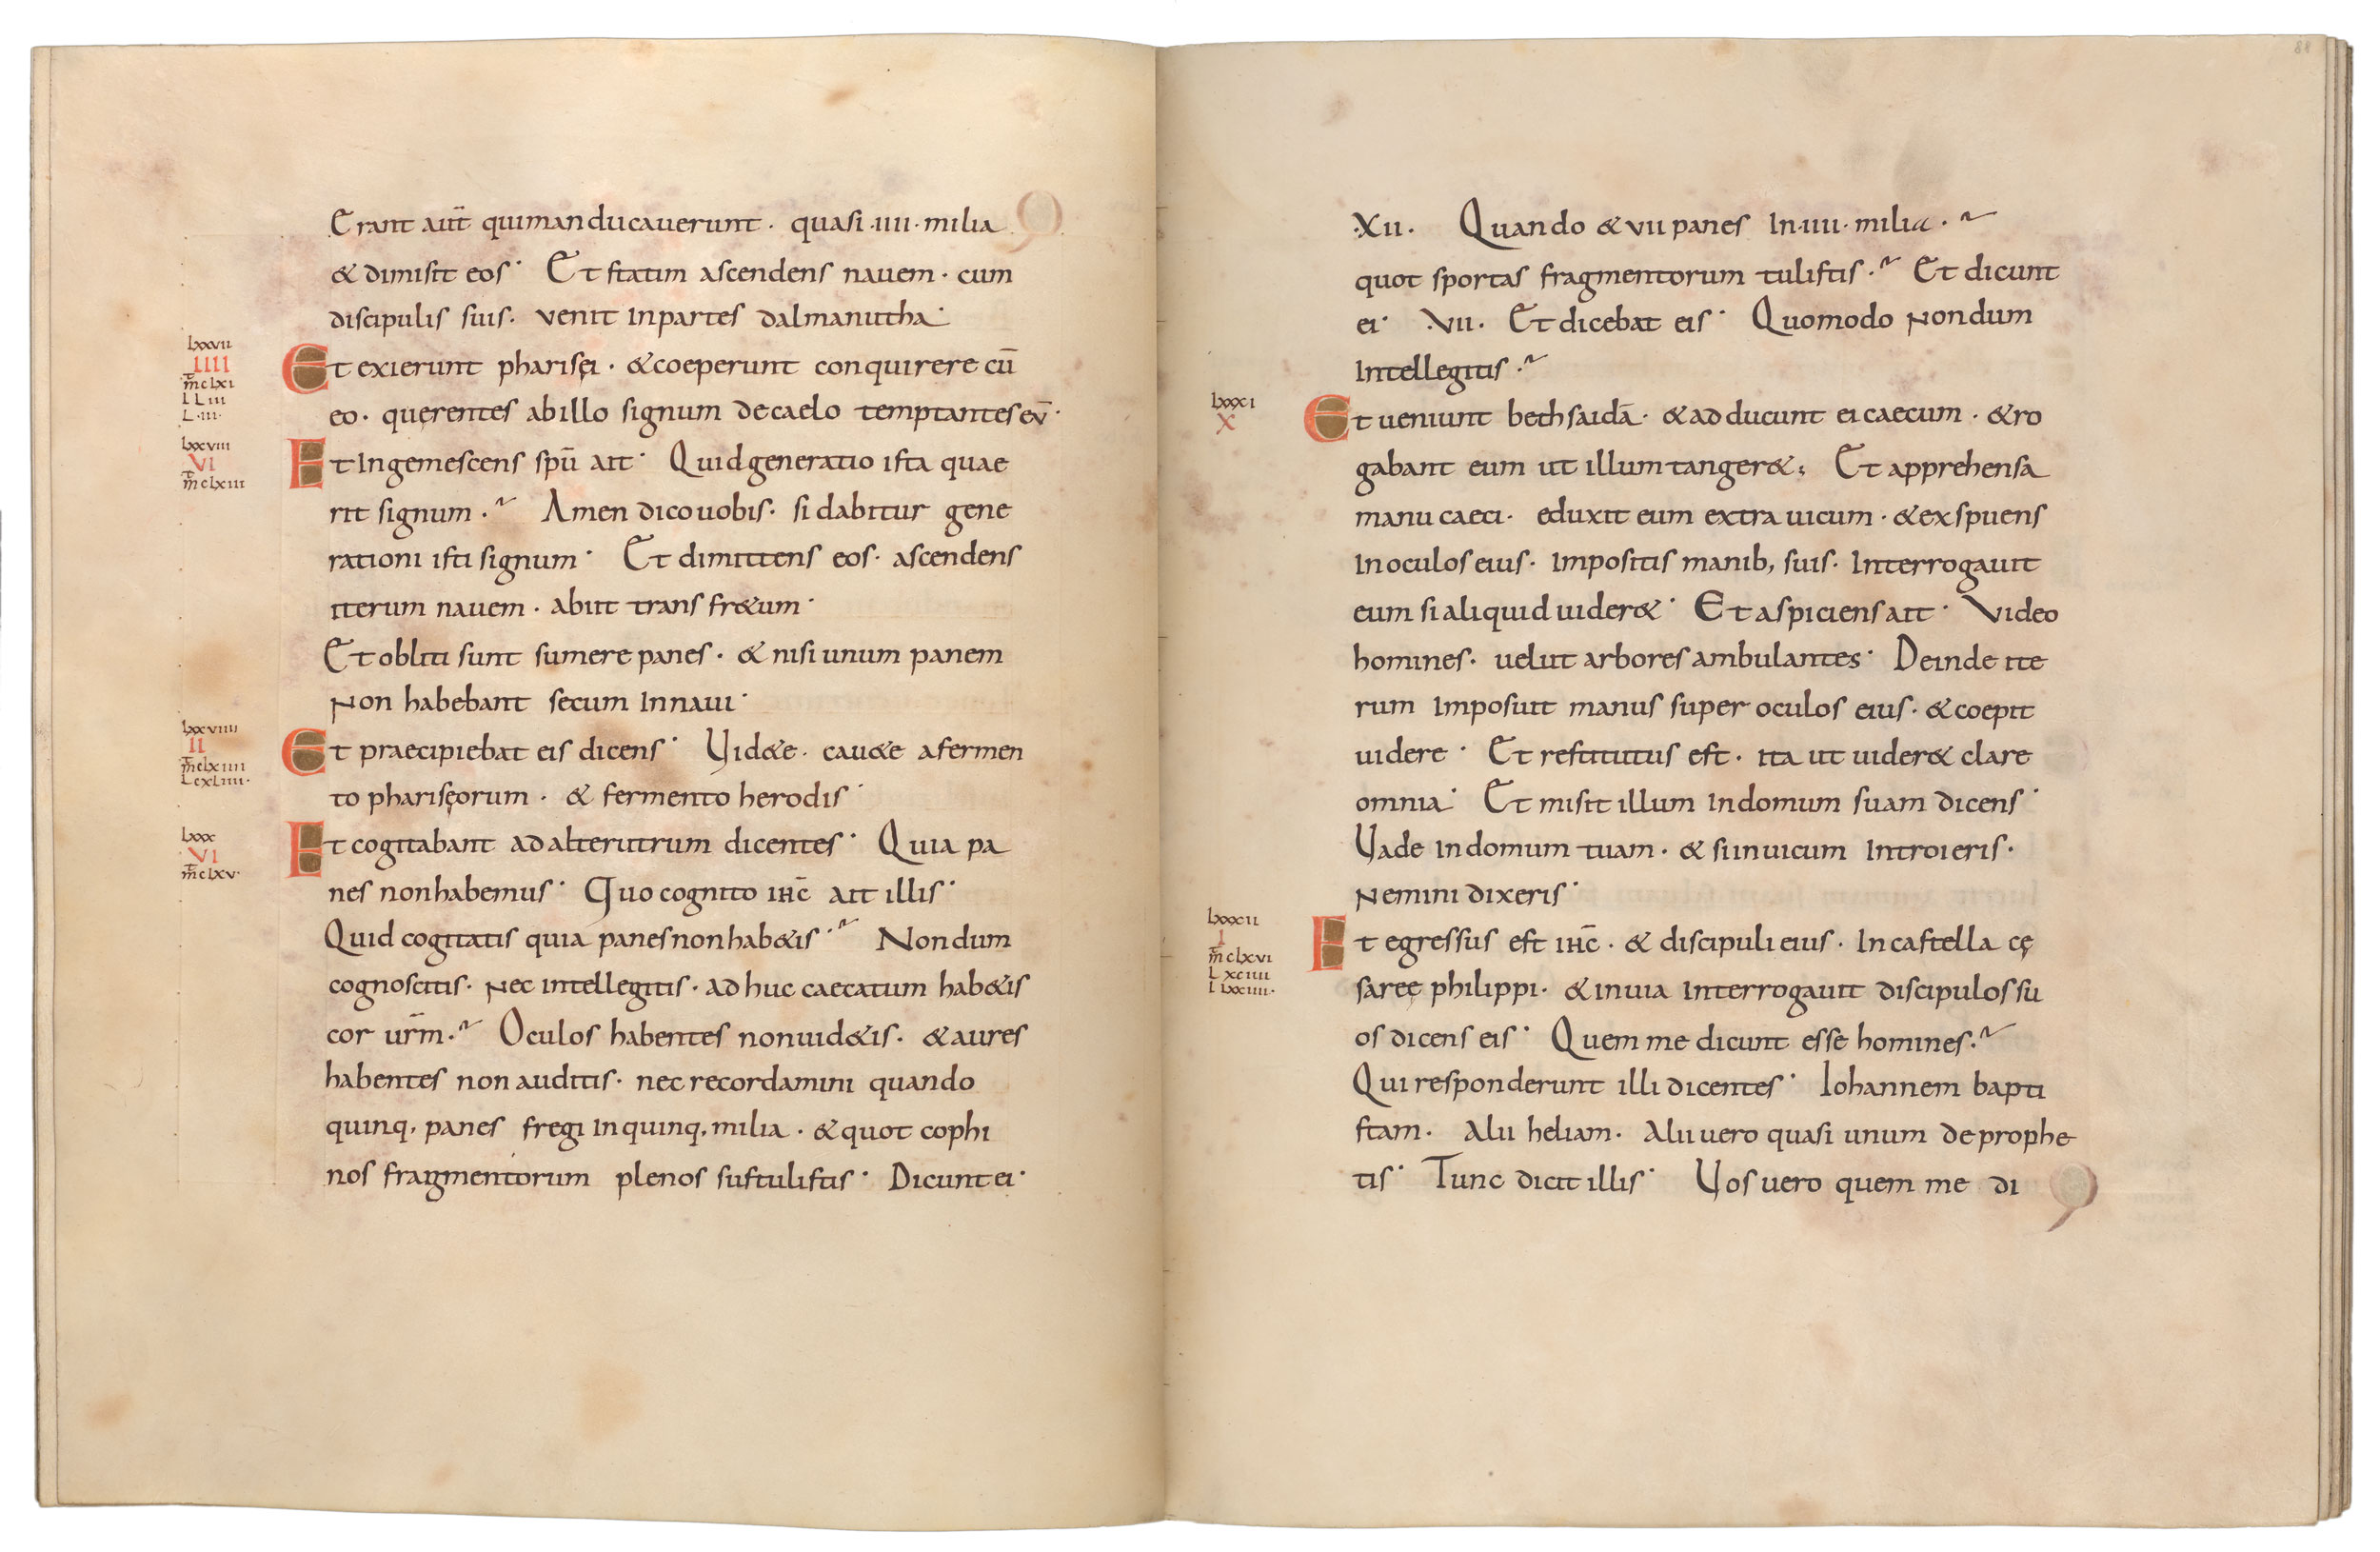 Erant aut̄ quimanducauerunt · quasi ·iiii· milia
& dimisit eos · Et statim ascendens nauem · cum
discipulis suis · venit Inpartes dalmanutha ·
lxxvii
IIII
m̄ clxi
L Liii
L · iii ·
Et exierunt pharisęi · &coeperunt conquirere cū
eo · quęrentes abillo signum decaelo temptantes eū ·
lxxviii
VI
m̄ clxiii
Et Ingemescens spū ait · Quidgeneratio ista quae
rit signum · Amen dicouobis · si dabitur gene
rationi isti signum · Et dimittens eos · ascendens
iterum nauem · abiit trans fr&um ·
Et obliti sunt sumere panes · & nisi unum panem
Non habebant secum Innaui ·
lxxviiii
II
m̄ clxiiii
L cxLiiii ·
Et praecipiebat eis dicens · Vid&e · cau&e afermen
to pharisęorum · & fermento herodis ·
lxxx
VI
m̄ clxv ·
Et cogitabant adalterutrum dicentes · Quia pa
nes nonhabemus · Quo cognito ihc̄ ait illis ·
Quid cogitatis quia panesnonhab&is · Nondum
cognoscitis · Nec intellegitis · adhuc caecatum hab&is
cor ur̄m · Oculos habentes nonuid&is · &aures
habentes non auditis · nec recordamini quando
quinq, panes fregi Inquinq, milia · &quot cophi
nos fragmentorum plenos sustulistis · Dicunt ei ·
88
·Xii · Quando &vii panes In·iiii· milia ·
quot sportas fragmentorum tulistis · Et dicunt
ei · ·Vii · Et dicebat eis · Quomodo Nondum
Intellegitis ·
lxxxi
X
Et ueniunt bethsaidā · &adducunt ei caecum · &ro
gabant eum ut illum tanger& ; Et apprehensa
manu caeci · eduxit eum extra uicum · &exspuens
Inoculos eius · Impositis manib, suis · Interrogauit
eum si aliquid uider& · Et aspiciens ait · Video
homines · uelut arbores ambulantes · Deinde ite
rum Imposuit manus super oculos eius · &coepit
uidere · Et restitutus est · ita ut uider& clare
omnia · Et misit illum Indomum suam dicens ·
Vade Indomum tuam · & si inuicum Introieris ·
Nemini dixeris ·
lxxxii
I
m̄ clxvi
L xciiii
l lxxiiii ·
Et egressus est ihc̄ · & discipuli eius · In castella cę
sareę philippi · &inuia Interrogauit discipulos su
os dicens eis · Quem me dicunt esse homines ·
Qui responderunt illi dicentes · Iohannem bapti
stam · Alii heliam · Alii uero quasi unum deprophe
tis · Tunc dicit illis · Vos uero quem me di